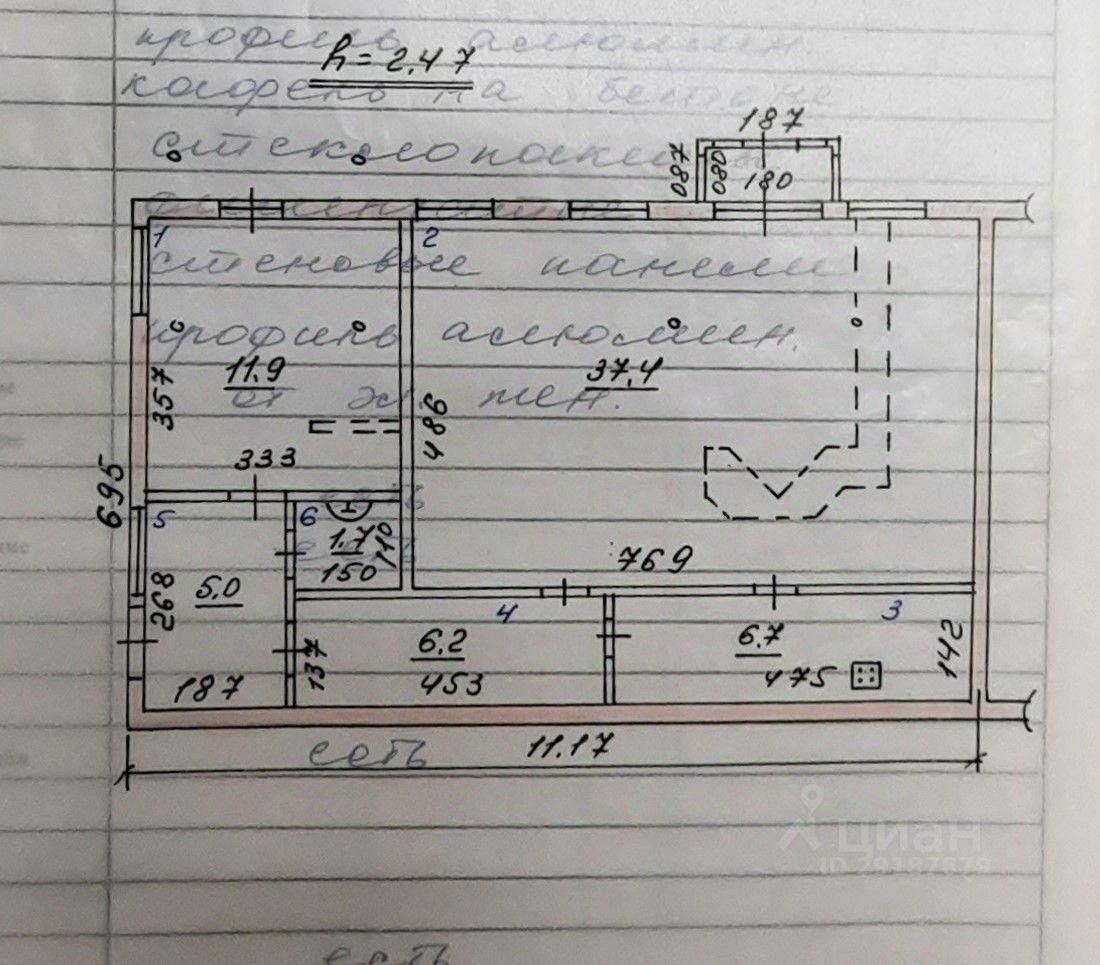 профиль алюмин
h=2.47
187
087
080
180
1
2
стеновые панели
профиль алюмин.
11.9
37.4
357
486
333
695
769
5
6
1.7
110
150
5.0
268
4
3
6.2
6.7
137
142
453
475
187
есть
11.17
циан
ID 79387679
есть